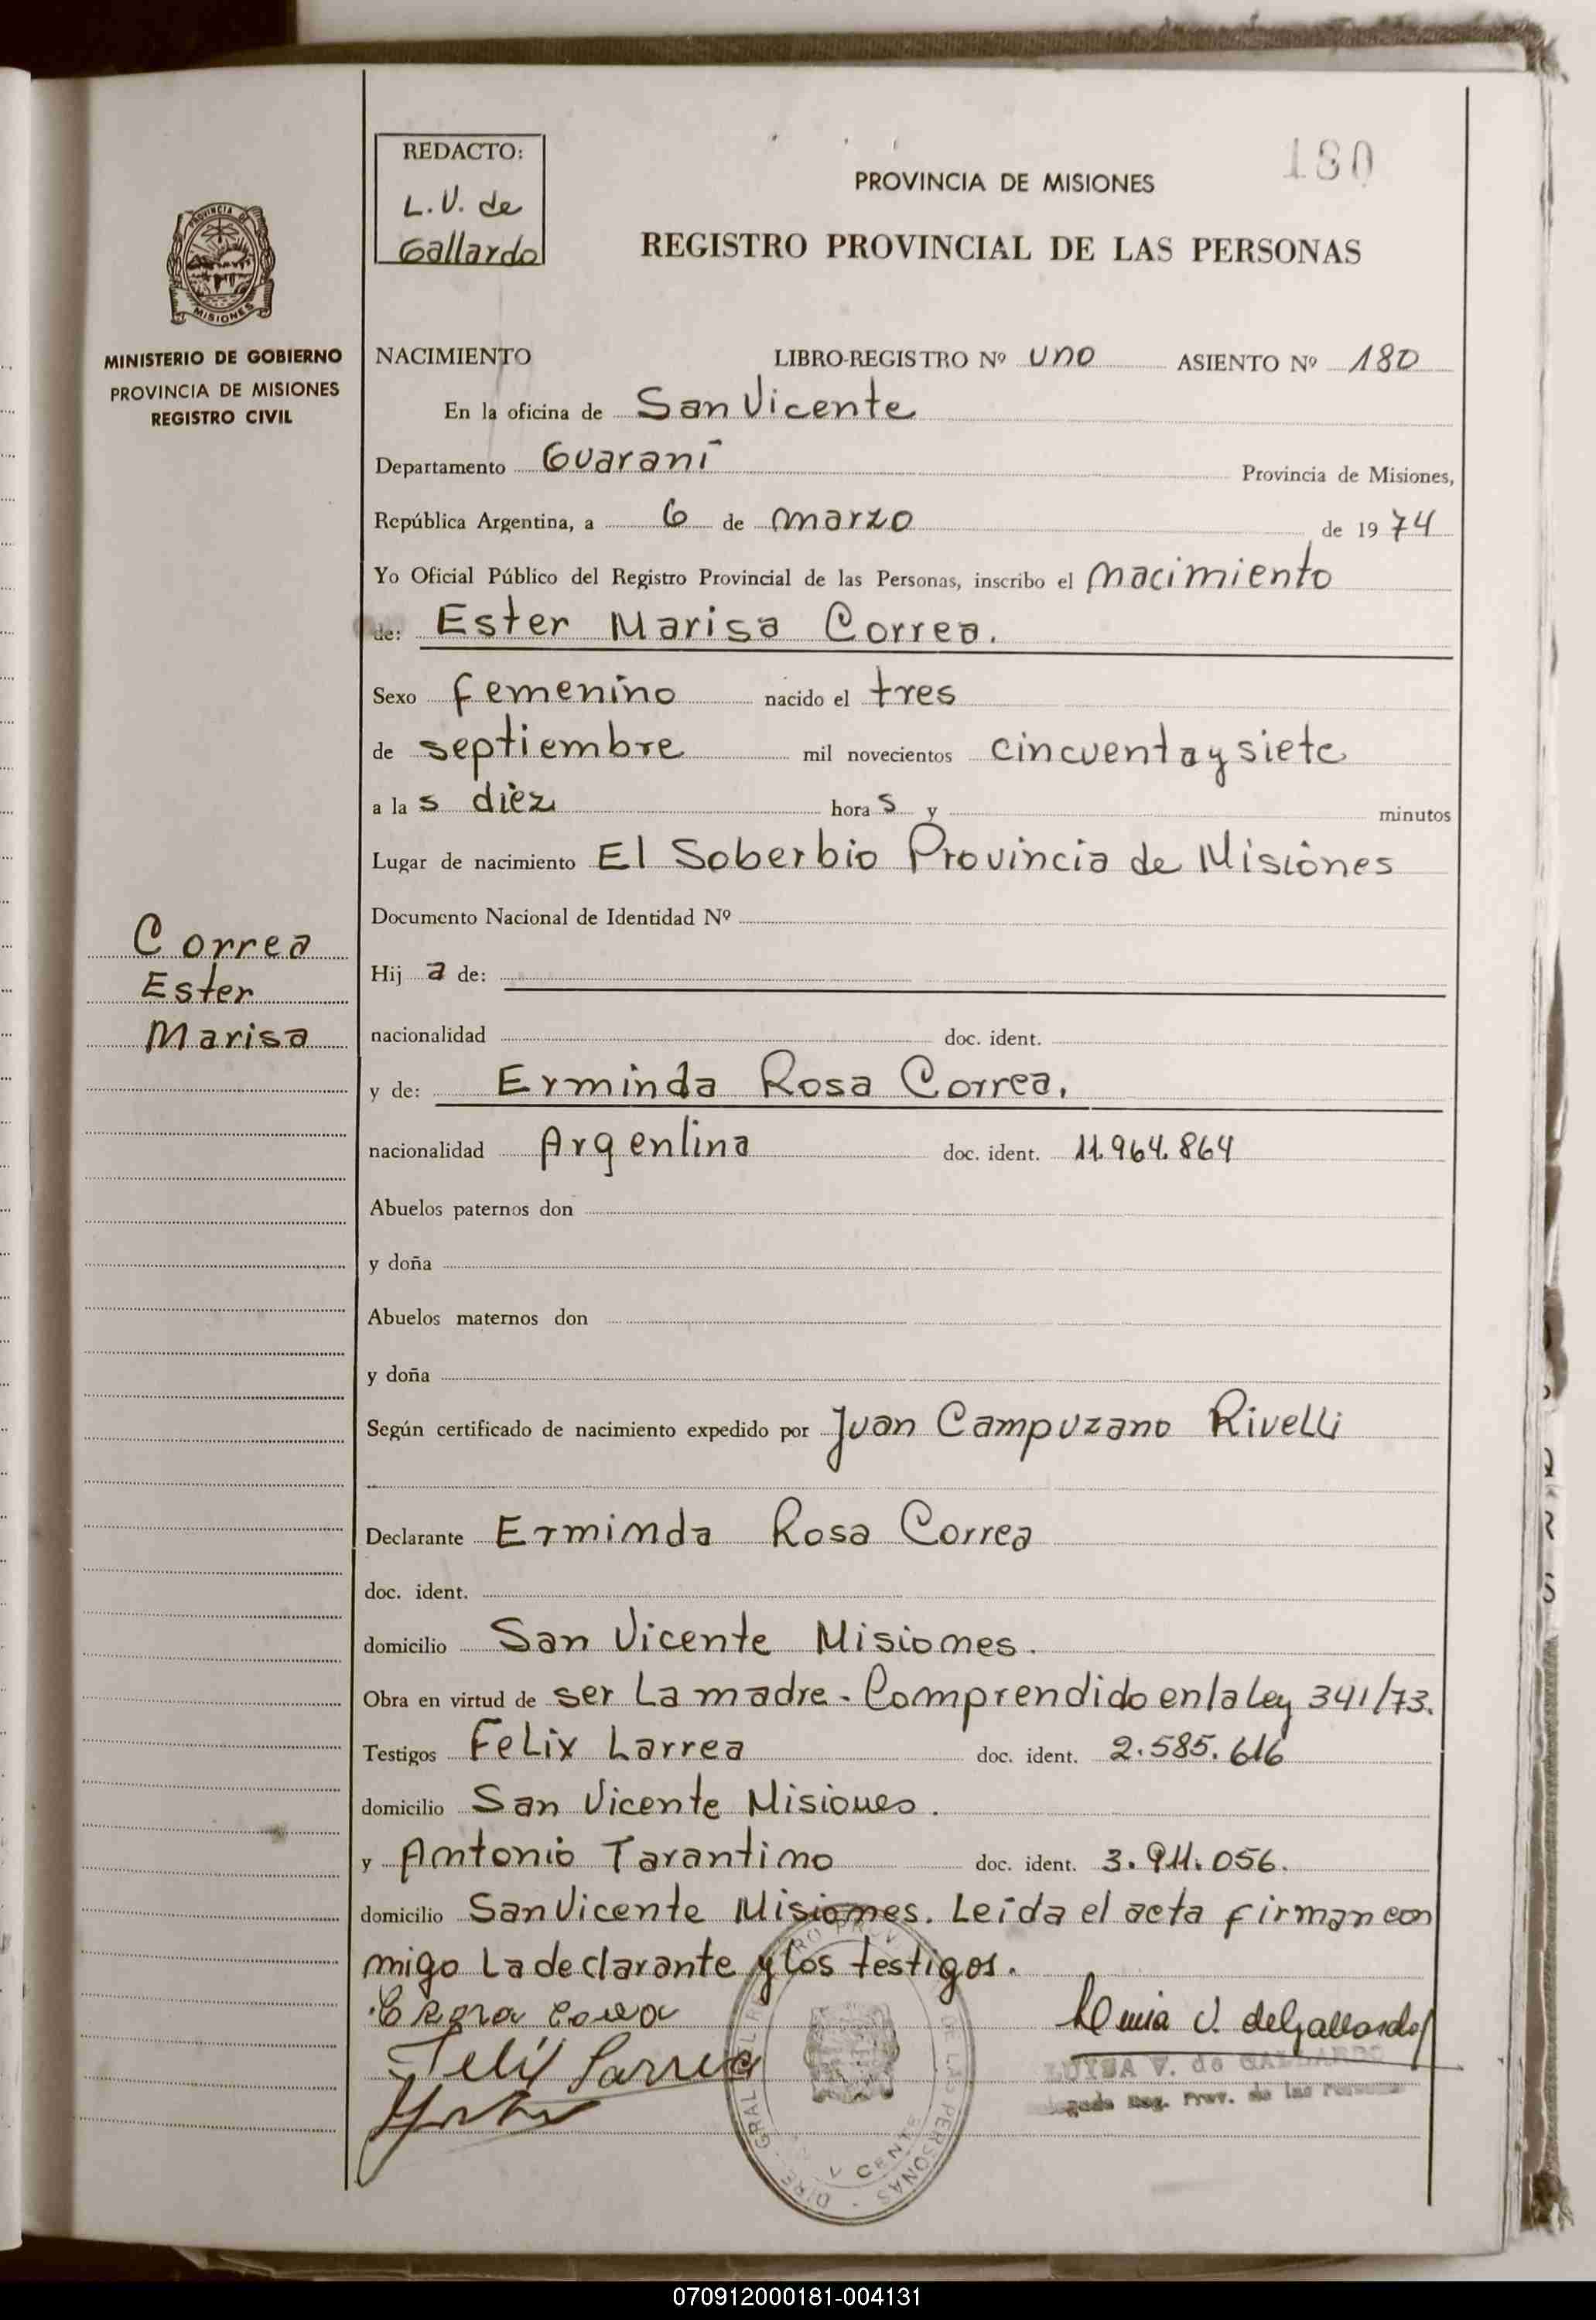 REDACTO:
L.V. de
Gallardo
180
PROVINCIA DE MISIONES
REGISTRO PROVINCIAL DE LAS PERSONAS
PROVINCIA DE
MISIONES
MINISTERIO DE GOBIERNO
PROVINCIA DE MISIONES
REGISTRO CIVIL
NACIMIENTO LIBRO-REGISTRO Nº uno ASIENTO Nº 180
En la oficina de San Vicente
Departamento Guaraní Provincia de Misiones,
República Argentina, a 6 de marzo de 1974
Yo Oficial Público del Registro Provincial de las Personas, inscribo el nacimiento
de: Ester Marisa Correa.
Sexo femenino nacido el tres
de septiembre mil novecientos cincuenta y siete
a las diez horas y minutos
Lugar de nacimiento El Soberbio Provincia de Misiones
Documento Nacional de Identidad Nº
Correa
Ester
Marisa
Hija de:
nacionalidad doc. ident.
y de: Erminda Rosa Correa.
nacionalidad Argentina doc. ident. 11.964.864
Abuelos paternos don
y doña
Abuelos maternos don
y doña
Según certificado de nacimiento expedido por Juan Campuzano Rivelli
Declarante Erminda Rosa Correa
doc. ident.
domicilio San Vicente Misiones.
Obra en virtud de ser La madre - Comprendido en la Ley 341/73.
Testigos Felix Larrea doc. ident. 2.585.616
domicilio San Vicente Misiones.
y Antonio Tarantino doc. ident. 3.911.056.
domicilio San Vicente Misiones. Leída el acta firman con
migo La declarante y los testigos.
Felix Larrea
V. de Gallardo
LUISA V. de GALLARDO
Reg. Prov. de las Personas
DIRE. GRAL. DE LAS PERSONAS
070912000181-004131